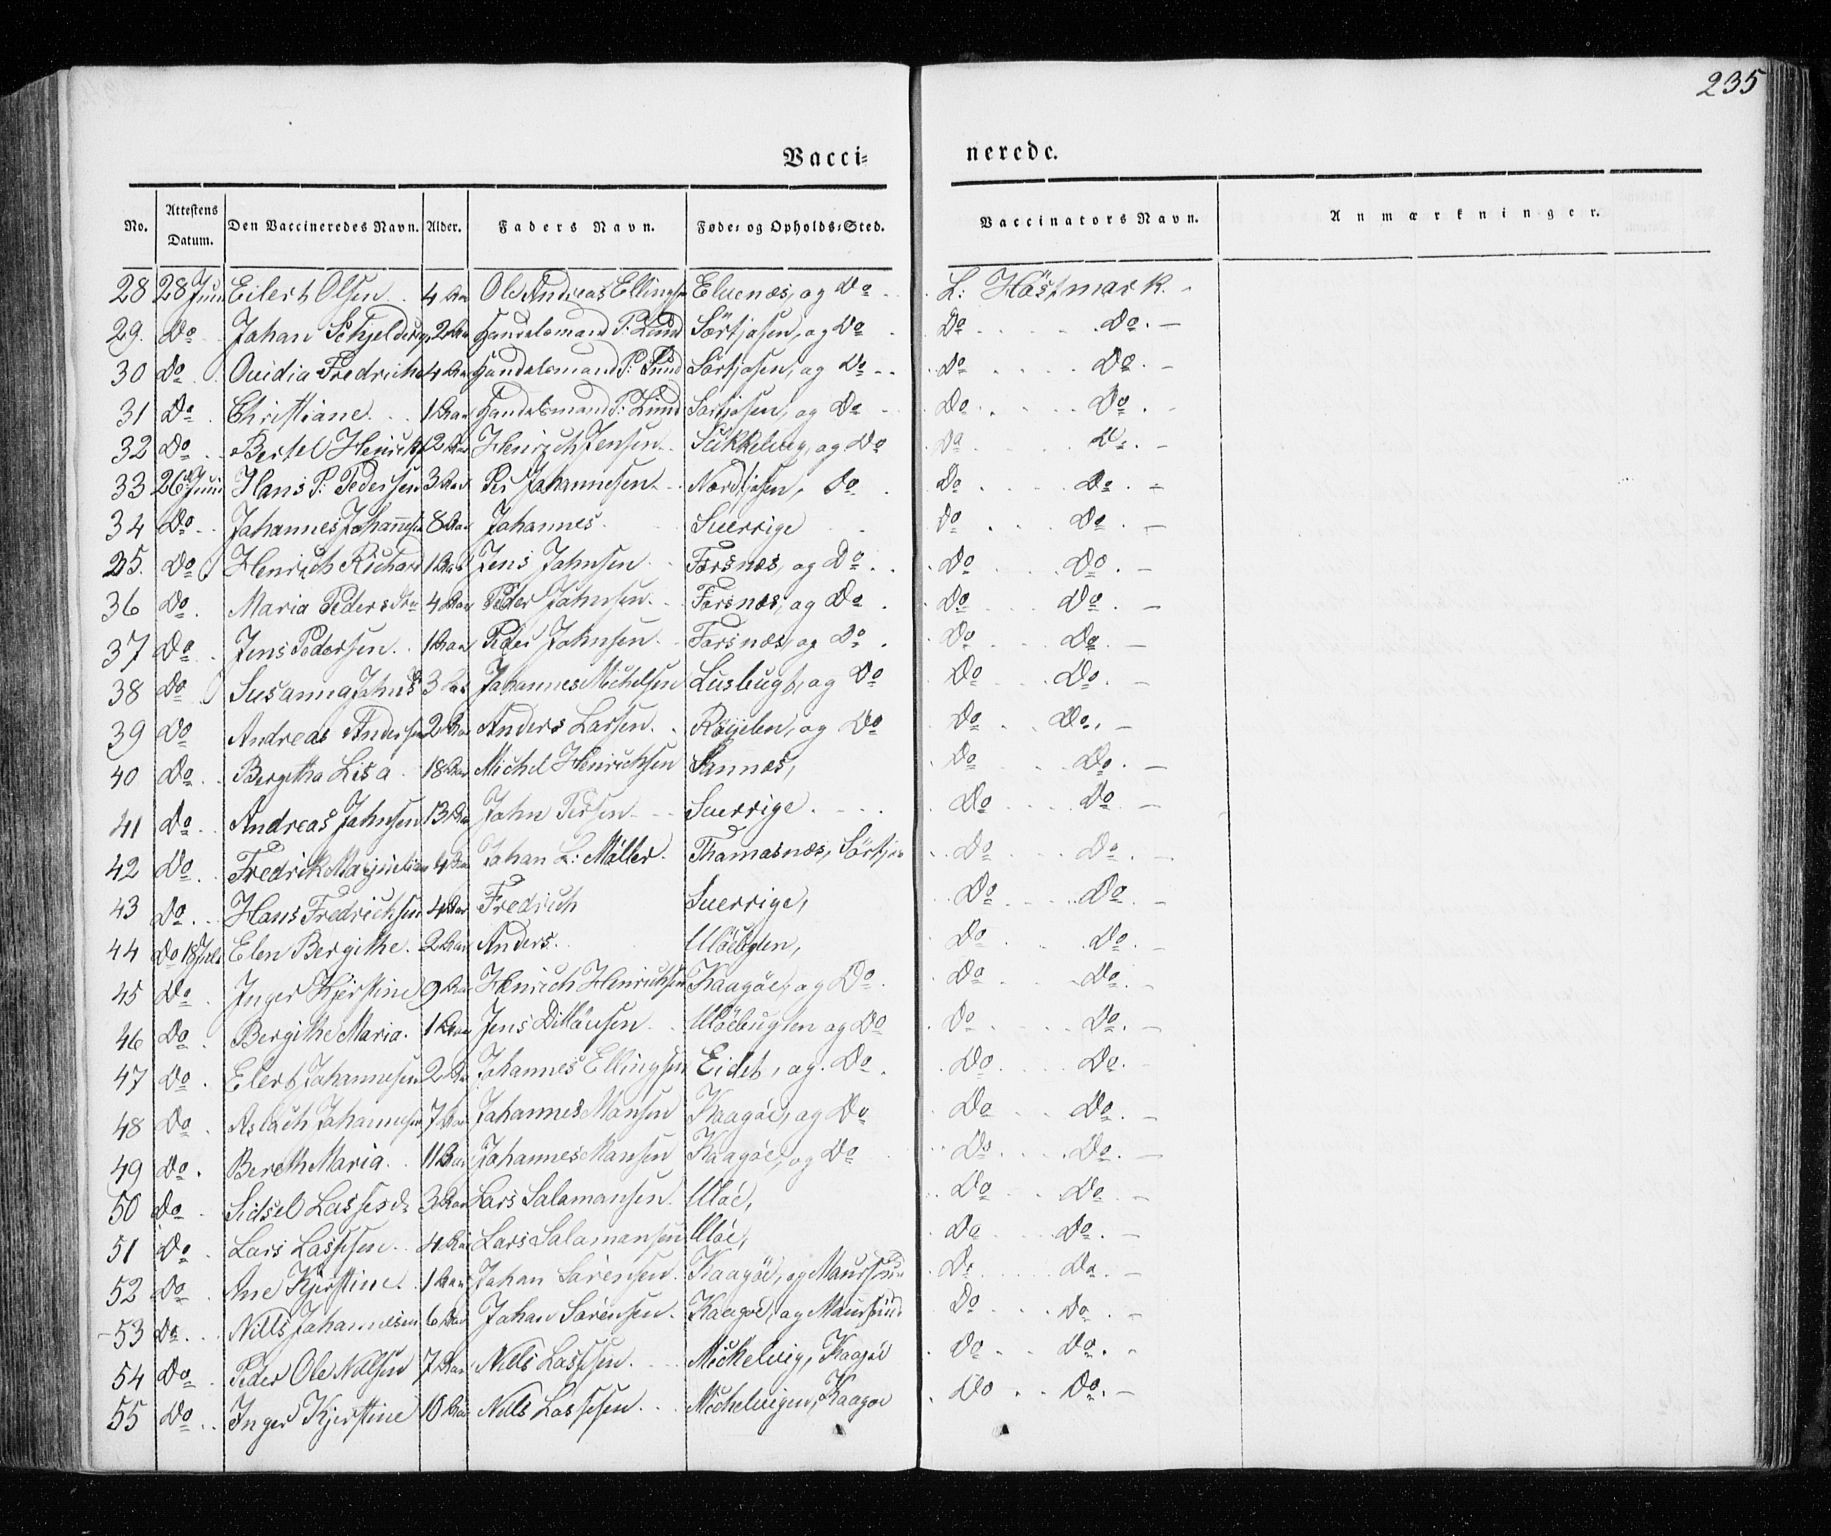 235
Vacci= nerede.
No. Attestens Datum. Den Vaccineredes Navn. Alder. Faders Navn. Føde= og Opholds=Sted. Vaccinators Navn. Anmærkninger.
28 28 Juni Eilert Olsen 4 Aar Ole Andreas Ellingsen Elvenæs, og Do L: Höstmark. -
29. Do Johan Schjelderup 2 Aar Handelsmand P: Lund Sørfjosen, og Do Do Do. -
30 Do Ovidia Fredricke 4 Aar Handelsmand P: Lund Sørfjosen, og Do Do Do. -
31 Do Christiane. 1 Aar Handelsmand P: Lund Sørfjosen, og Do Do Do. -
32 Do Bertel Henrichs 2 Aar Henrich Jensen Sikkelvig, og Do Do Do. -
33 26 Juni Hans P: Pedersen 3 Aar Per Johannesen Nordfjosen, Do Do Do. -
34 Do Johannes Johannesen 8 Aar Johannes Sverrige Do Do. -
35. Do Henrich Richard 1 Aar Jens Johnsen Forsnæs, og Do Do Do. -
36 Do Maria Peders Dr 4 Aar Peder Johnsen Forsnæs, og Do Do Do. -
37 Do Jens Pedersen 1 Aar Peder Johnsen Forsnæs, og Do Do Do. -
38 Do Susanna Johns D 3 Aar Johannes Michelsen Lusbugt, og Do Do Do. -
39 Do Andreas Andersen 2 Aar Anders Larsen Röyelen, og Do Do Do. -
40 Do Bergitha Lisa 18 Aar Michel Henrichsen Sannæs, Do Do. -
41 Do Andreas Johnsen 13 Aar John Persen Sverrige Do Do -
42 Do Fredrik Maximilian 4 Aar Johan L: Møller. Thomasnæs, Sörfjo Do Do. -
43 Do Hans Fredrichsen 4 Aar Fredrich Sverrige, Do Do. -
44 Do 18 Juli Elen Bergithe. 2 Aar Anders. Uløebugten, Do Do. -
45 Do Inger Kjerstine 9 Aar Henrich Henrichsen Kaagöe, og Do Do Do. -
46 Do Bergithe Maria. 1 Aar Jens Uløebugten og Do Do Do. -
47 Do Elert Johannesen 2 Aar Johannes Ellingsen Eidet, og. Do Do Do. -
48 Do Aslach Johannesen 7 Aar Johannes Monsen Kaagöe, og Do Do Do. -
49 Do. Bereth Maria. 11 Aar Johannes Monsen Kaagöe, og Do Do Do. -
50 Do Sidsel Lasses d 3 Aar Lars Salamonsen Uløe, Do Do -
51 Do Lars Lassesen 4 Aar Lars Salamonsen Uløe, Do Do. -
52 Do Ane Kjerstine. 1 Aar Johan Sørensen. Kaagöe, og Maursund Do Do. -
53 Do Nills Johannesen 6 Aar Johan Sørensen. Kaagöe, og Maursund Do Do. -
54 Do Peder Ole Nilsen 7 Aar Nills Lassesen. Mickelvig, Kaagöe Do Do. -
55 Do Inger Kjerstine 10 Aar Nills Lassesen. Michelvigen, Kaagöe Do Do. -